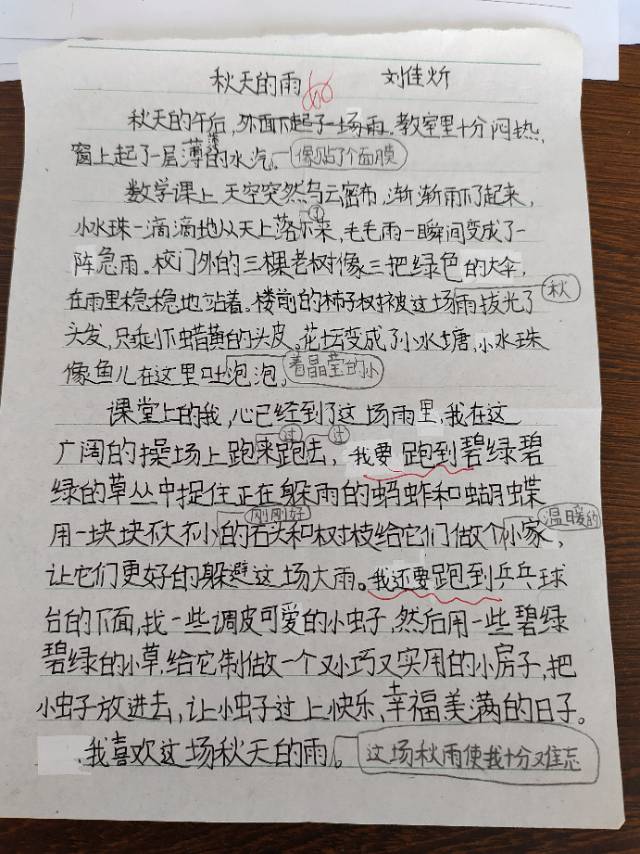 秋天的雨 刘佳炘
秋天的午后，外面下起了一场雨。教室里十分闷热，
窗上起了一层薄薄的水汽。像贴了个面膜
数学课上，天空突然乌云密布，渐渐雨下了起来，
小水珠一滴滴地从天上落下来，毛毛雨一瞬间变成了一
阵急雨。校门外的三棵老树像三把绿色的大伞，
在雨里稳稳地站着。楼前的柿子树被这场雨拔光了 秋
头发，只剩下蜡黄的头皮。花坛变成了小水塘，小水珠
像鱼儿在这里吐泡泡， 着晶莹的小
课堂上的我，心已经到了这场雨里，我在这
广阔的操场上跑来跑去，我要跑到碧绿碧 过 过
绿的草丛中捉住正在躲雨的蚂蚱和蝴蝶
用一块块不大不小的石头和树枝给它们做个小家， 刚刚好 温暖的
让它们更好的躲避这场大雨。我还要跑到乒乓球
台的下面，找一些调皮可爱的小虫子，然后用一些碧绿
碧绿的小草，给它制做一个又小巧又实用的小房子，把
小虫子放进去，让小虫子过上快乐，幸福美满的日子。
我喜欢这场秋天的雨。这场秋雨使我十分难忘